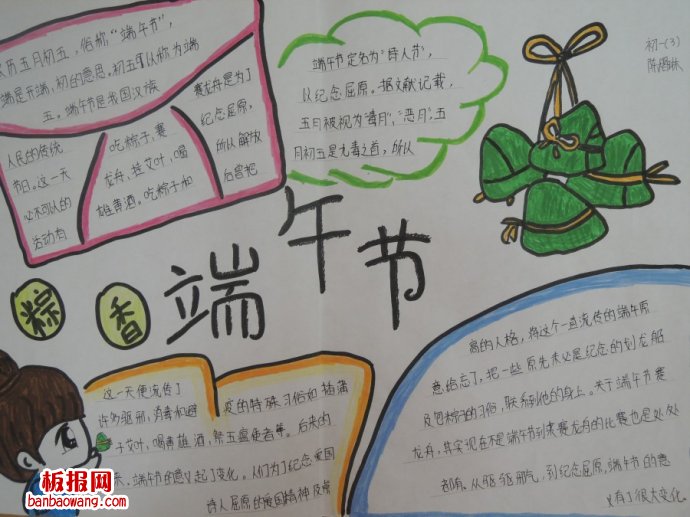 农历五月初五，俗称"端午节"，
端是开端，初的意思。初五可以称为端
五。端午节是我国汉族
人民的传统
节日。这一天
必不可少的
活动有
吃粽子，赛
龙舟，挂艾叶，喝
雄黄酒。吃粽子和
赛龙舟是为了
纪念屈原，
所以解放
后曾把
端午节定名为"诗人节"，
以纪念屈原。据文献记载，
五月被视为"毒月"，"恶月"，五
月初五是九毒之首，所以
初一(3)
粽香
端午节
这一天便流传了
许多驱邪，消毒和避
疫的特殊习俗如 插蒲
子艾叶，喝黄雄酒，祭五瘟使者等。后来的
来，端午节的意义起了变化。人们为了纪念爱国
诗人屈原的爱国精神及
高的人格，将这个一直流传的端午原
意给忘了，把一些原先未必是纪念的划龙船
及包粽子的习俗，联系到他的身上。关于端午节赛
龙舟，其实现在不是端午节到来赛龙舟的比赛也是处处
都有。从驱邪气，到纪念屈原，端午节的意
义有了很大变化。
板报网
banbaowang.com